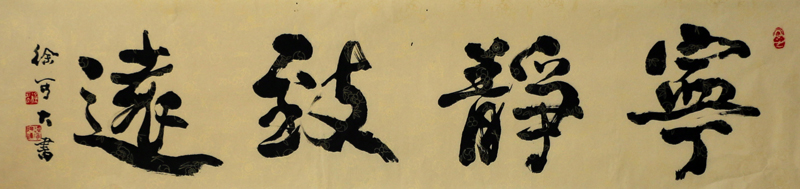 寧靜致遠
徐可大書